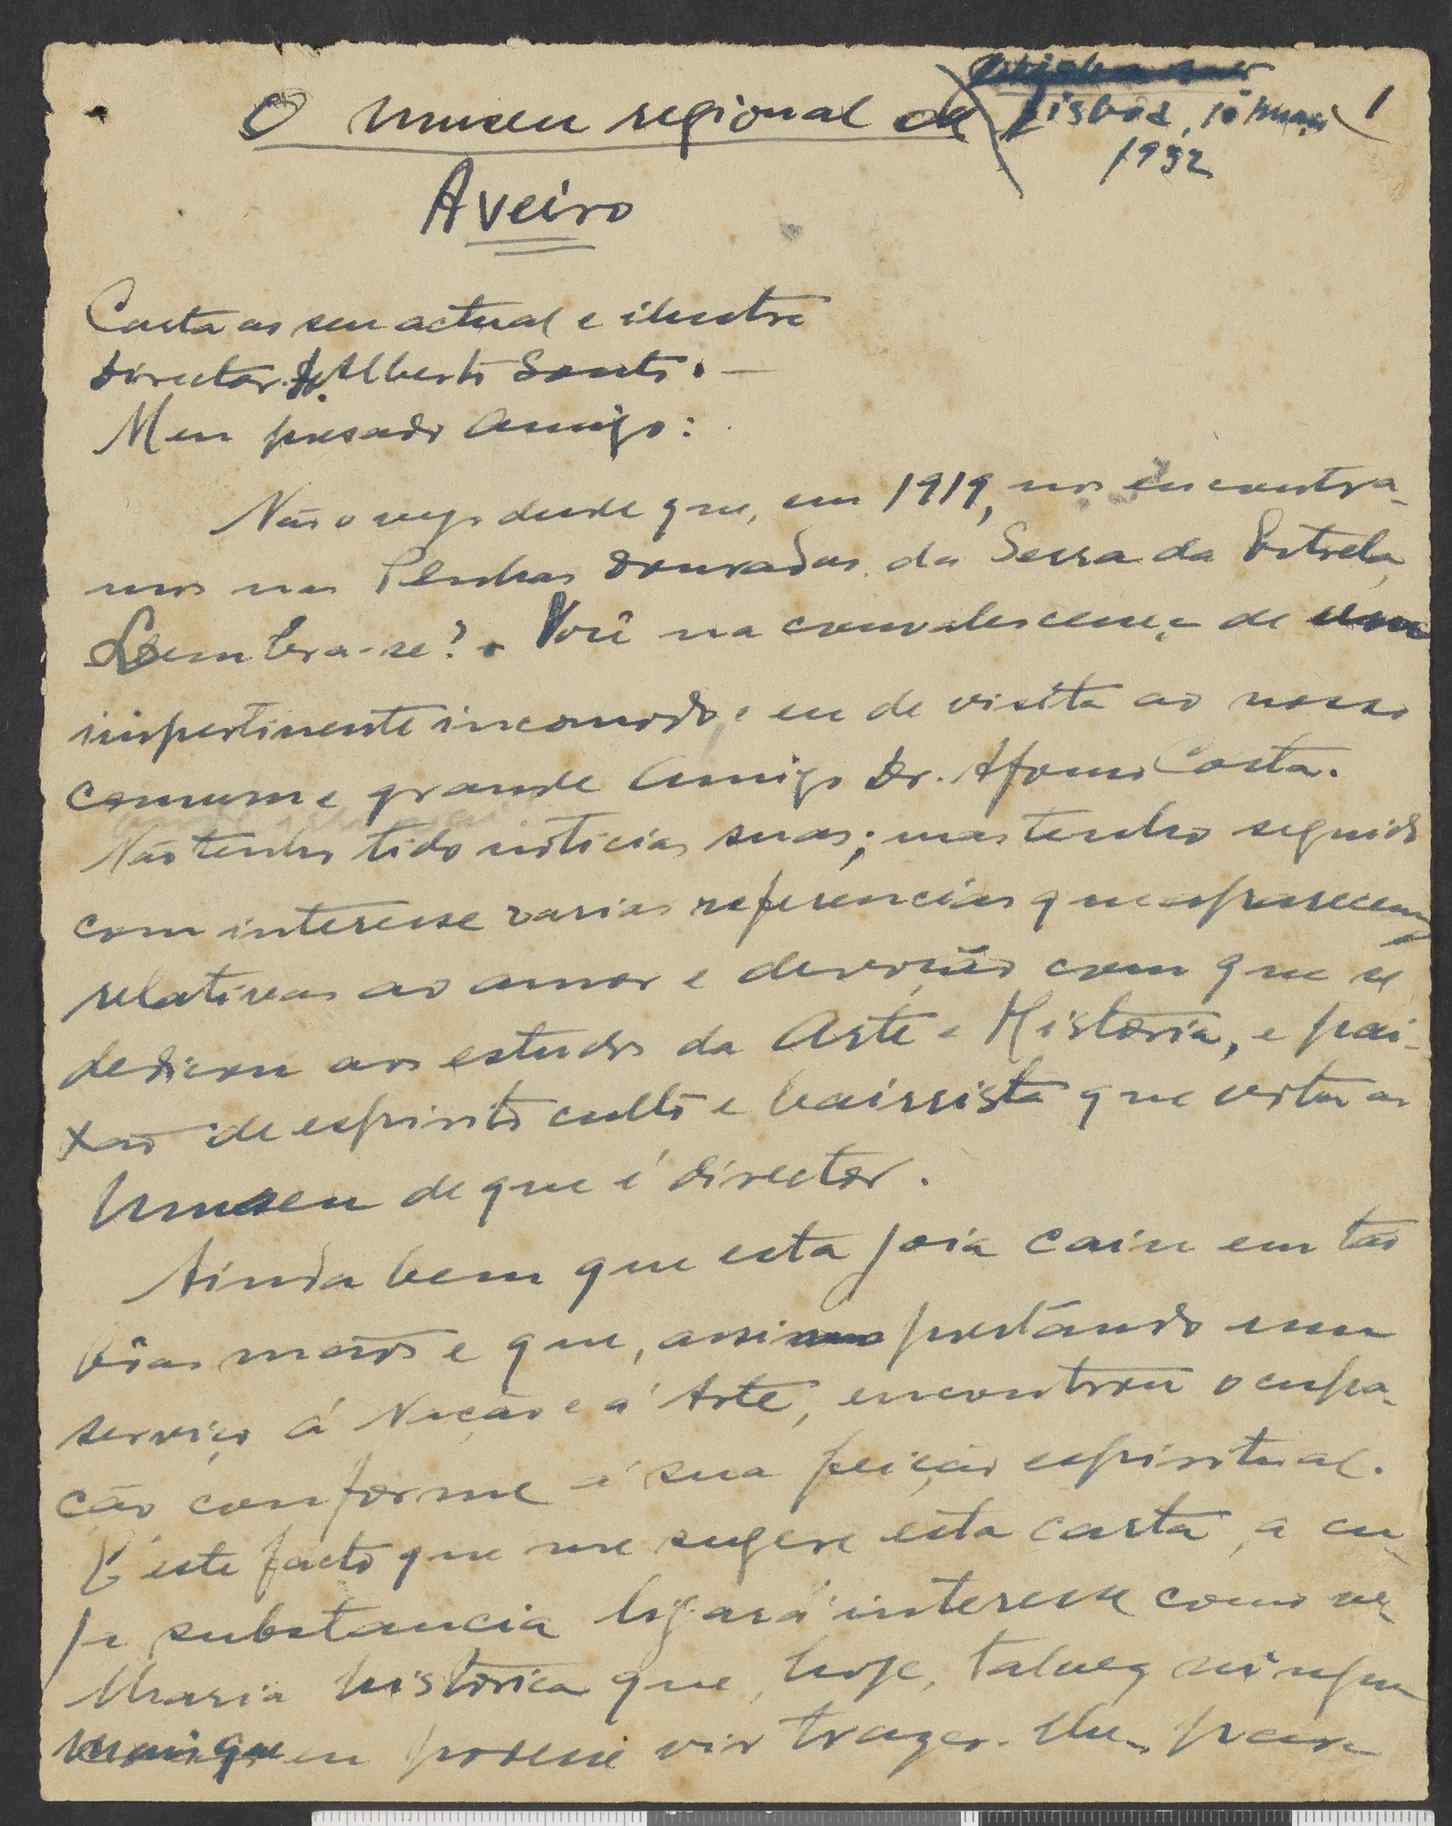 O Museu regional de
Lisboa, 10 março
1932
1
Aveiro
Carta ao seu actual e ilustre
Director Dr. Alberto Souto. —
Meu presado Amigo:
Não o vejo desde que, em 1919, nos encontra-
mos nas Penhas Douradas da Serra da Estrela,
Lembra-se? Você na convalescença de um
impertinente incomodo, e eu de visita ao nosso
comum e grande Amigo Dr. Afonso Costa.
Não tenho tido noticias suas; mas tenho seguido
com interesse varias referencias que aparecem
relativas ao amor e devoção com que se
dedicou aos estudos da Arte e Historia, e pai-
xão de espirito culto e bairrista que vota ao
Museu de que é director.
Ainda bem que esta joia caiu em tão
bôas mãos e que, assim prestando um
serviço á Nação e á Arte, encontrou ocupa-
ção conforme á sua feição espiritual.
É este facto que me sugere esta carta, a cu-
ja substancia ligará interesse como me-
moria historica que, hoje, talvez ninguem
mais que eu podesse vir trazer-lhe, para